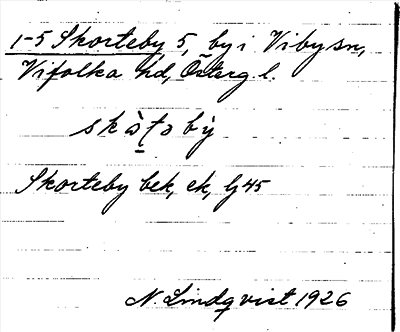 1-5 Skorteby 5, by i Viby sn,
Vifolka hd, Österg l.
skò̠ʈə bỳ
Skorteby bek, ek, lj 45
N. Lindqvist 1926